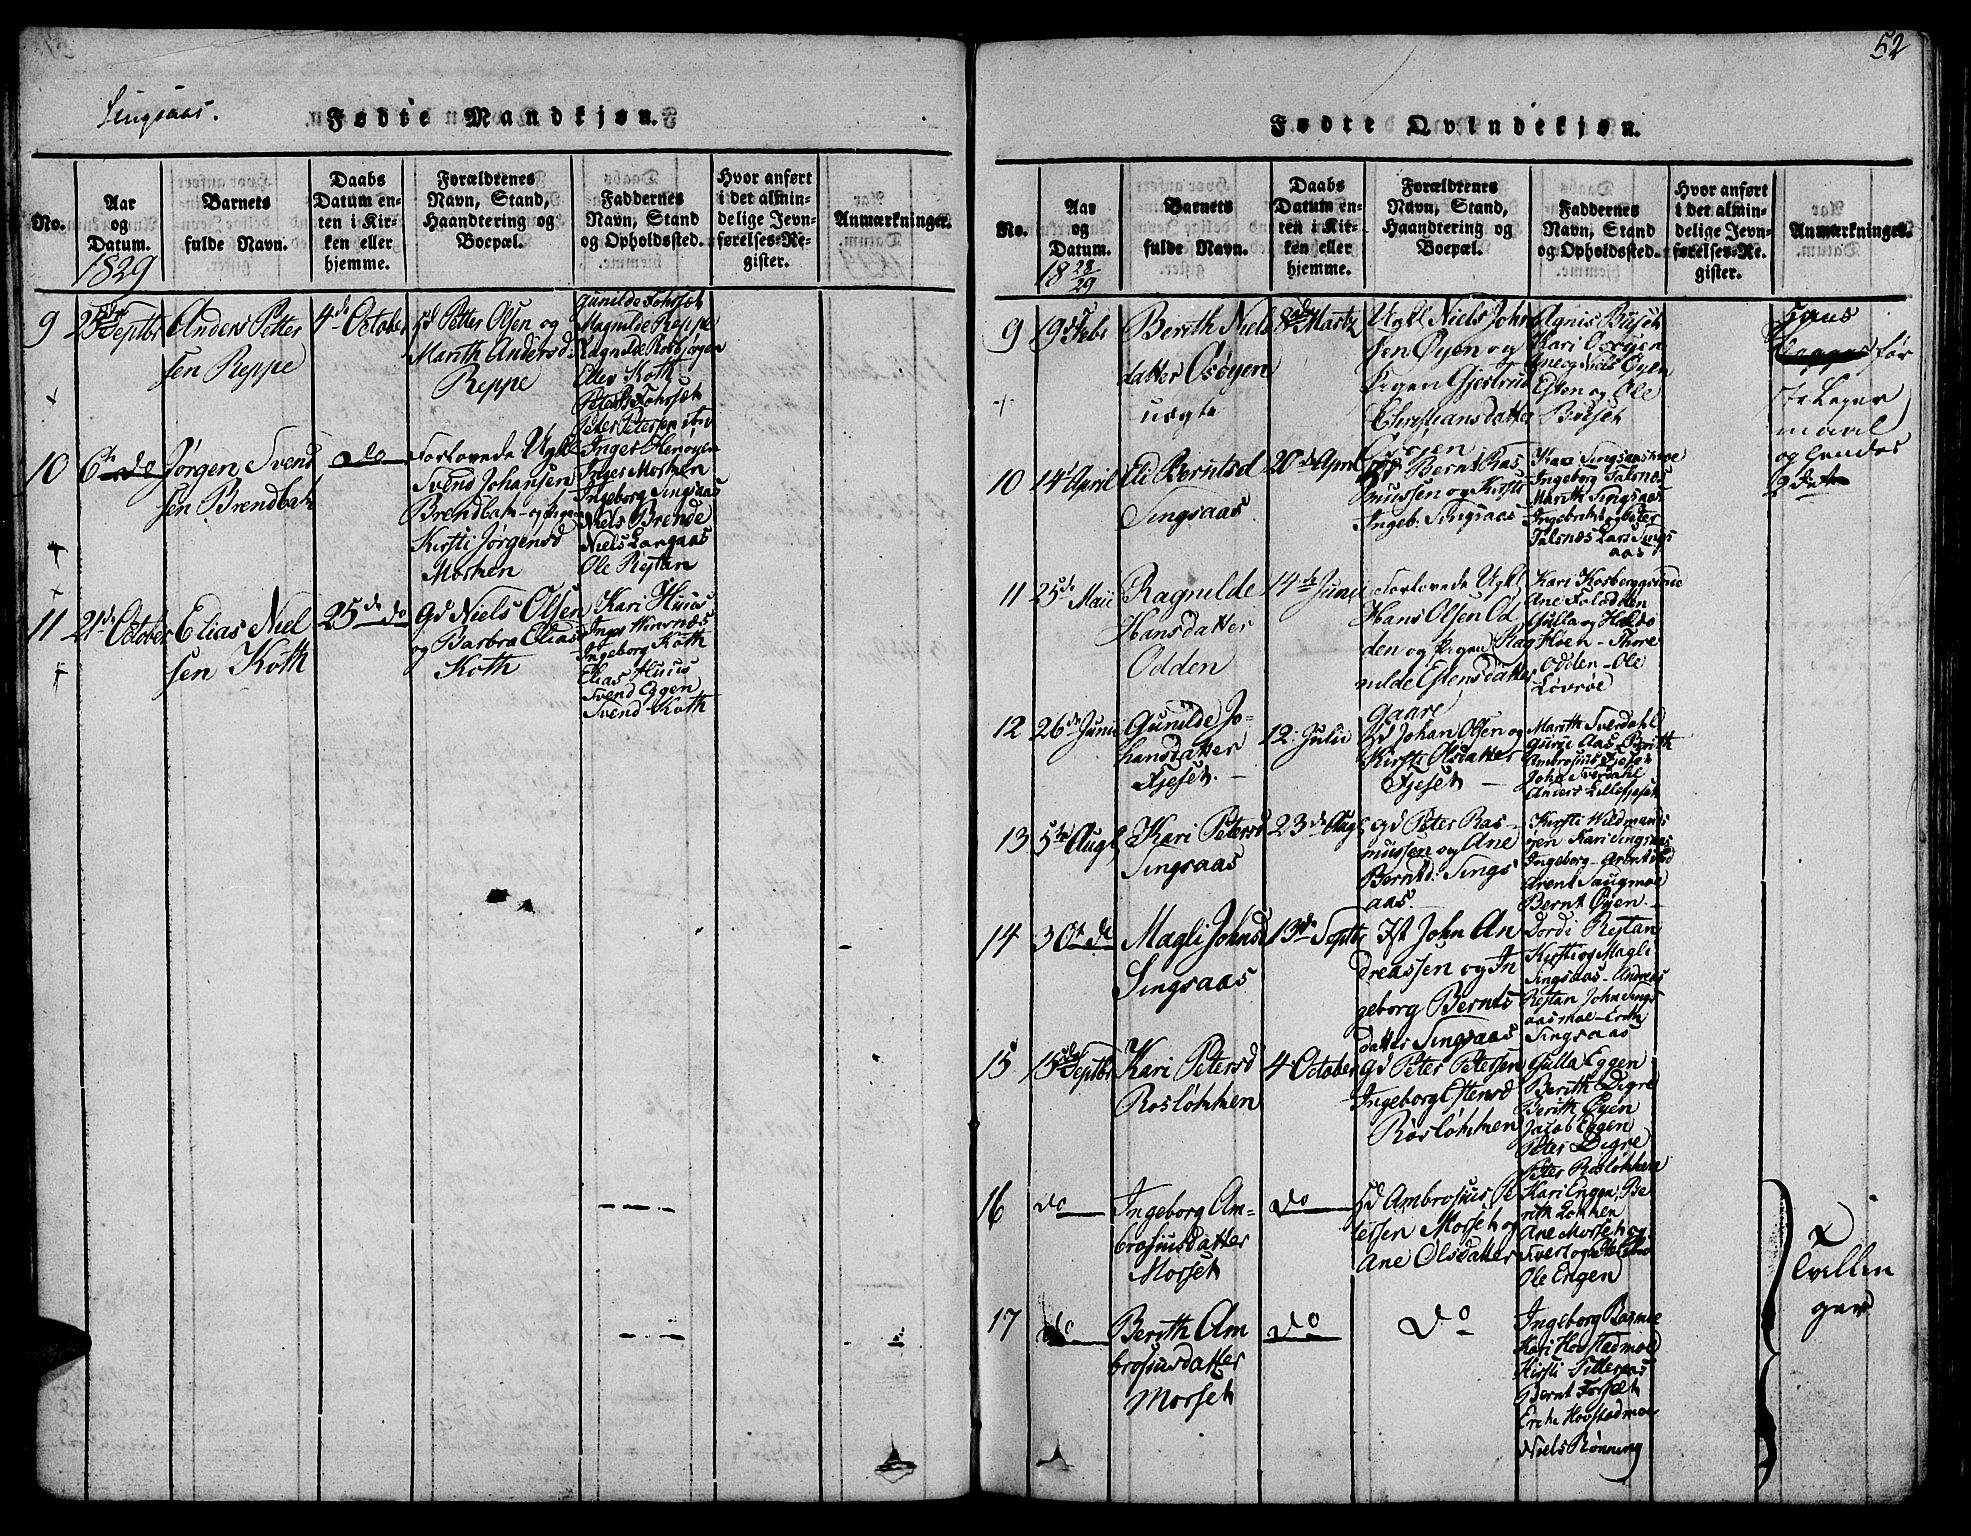 52
Singsaas.
Fødte Mandkjøn.
No.
Aar
og
Datum.
1829
Barnets
fulde Navn.
Daabs
Datum en-
ten i Kir-
ken eller
hjemme.
Forældrenes
Navn, Stand,
Haandtering og
Boepæl.
Faddernes
Navn, Stand
og Opholdssted.
Hvor anført
i det almin-
delige Jevn-
førelses-Re-
gister.
Anmærkninger.
9
Septbr
Anders Petter
sen Reppe
4de October
Petter Olsen og
Marith Andersd.
Reppe
Gunilde Forset
Magnilde Reppe
Ragnilde Rosbjørgen
Ellev Koth
Peter Forset
Peter Petersen
10
6te do
Jørgen Svend
sen Brendbak
do
Forlovede Ugkl
Svend Johansen
Brendbak og Pigen
Kirsti Jørgensd
Morken
Inger Henøyen
Inger Morken
Ingeborg Singsaas
Niels Brende
Niels Langaas
Ole Rytan
11
21de October
Elias Niel
sen Koth
25de do
Gd Niels Olsen
og Barbra Eliasd
Koth
Kari Huus
Inger Winsnæs
Ingeborg Koth
Elias Huus
Svend Eggen
Svend Koth
Fødte Qvindekjøn.
No.
Aar
og
Datum.
18 28/29
Barnets
fulde Navn.
Daabs
Datum en-
ten i Kir-
ken eller
hjemme.
Forældrenes
Navn, Stand,
Haandtering og
Boepæl.
Faddernes
Navn, Stand
og Opholdssted.
Hvor anført
i det almin-
delige Jevn-
førelses-Re-
gister.
Anmærkninger.
9
19de Febr
Berith Niels
datter Osøyen
uægte
Martz
Ugkl Niels John
sen Øyen og
Pigen Gjertrud
Christiansdatter
Osøyen
Agnis Buset
Kari Osøyen
Øyen
Esten og Ole
Buset
Hans
før
ste Leger
maal
og hendes
2det
10
14de April
Eli Berntsd
Singsaas
20de April
Bernt Ras
mussen og Kirsti
Ingeb. Singsaas
Kari Singsaasmoe
Ingeborg Talsnæs
Marith Singsaas
Ingebrikt og Peter
Talsnæs Lars Sings
aas
11
25de Maii
Ragnilde
Hansdatter
Odden
14de Junii
Forlovede Ugkl
Hans Olsen Od
den og Pigen Rag
nilde Estensdatter
Gaare
Kari Kosberggrinde
Ane
Gulla og
Hoen - Thore
Odden - Ole
Løvrøe
12
26de Junii
Gunilde Jo-
hansdatter
Fjeset
12. Julii
Gd Johan Olsen og
Kirsti Olsdatter
Fjeset
Marith Sverdahl
Gurie Aas Berith
Ambrosius Fjeset
John Sverdahl
Anders Lillefjeset
13
5te Augl
Kari Petersd
Singsaas
23de Augl
Gd Peter Ras-
mussen og Ane
Berntd. Sings
aas
Kirsti Wildmands
øyen Kari Singsaas
Ingeborg
Arent Haugmoe
Bernt Øyen
14
30te do
Magli Johnsd
Singsaas
13de Septbr
Ist John An
dreassen og In
geborg Bernts
datter Singsaas
Dordi Rytan
Kirsti og Magli
Singsaas - Andreas
Rytan John Sings
aasmoe - Erich
Singsaas
15
15de Septbr
Kari Petersd
Rosløkken
4 October
Gd Peter Petersen
Ingeborg Estensd
Rosløkken
Gulla Eggen
Berith Digre
Berith Øyen
Jacob Eggen
Peter Digre
Peter Rosløkken
16
do
Ingeborg Am-
brosiusdatter
Morset
do
Ambrosius Pe
tersen Morset og
Ane Olsdatter
Kari Engen, Be
rith Løkken
Ane Morset og
Sivert og
Ole Engen
Tvillin
ger
17
do
Berith Am
brosiusdatter
Morset
do
do
Ingeborg Rasmoe
Kari Hovstadmoe
Kirsti Silleraas
Bernt Forset
Erik Hovstadmoe
Niels Rønning